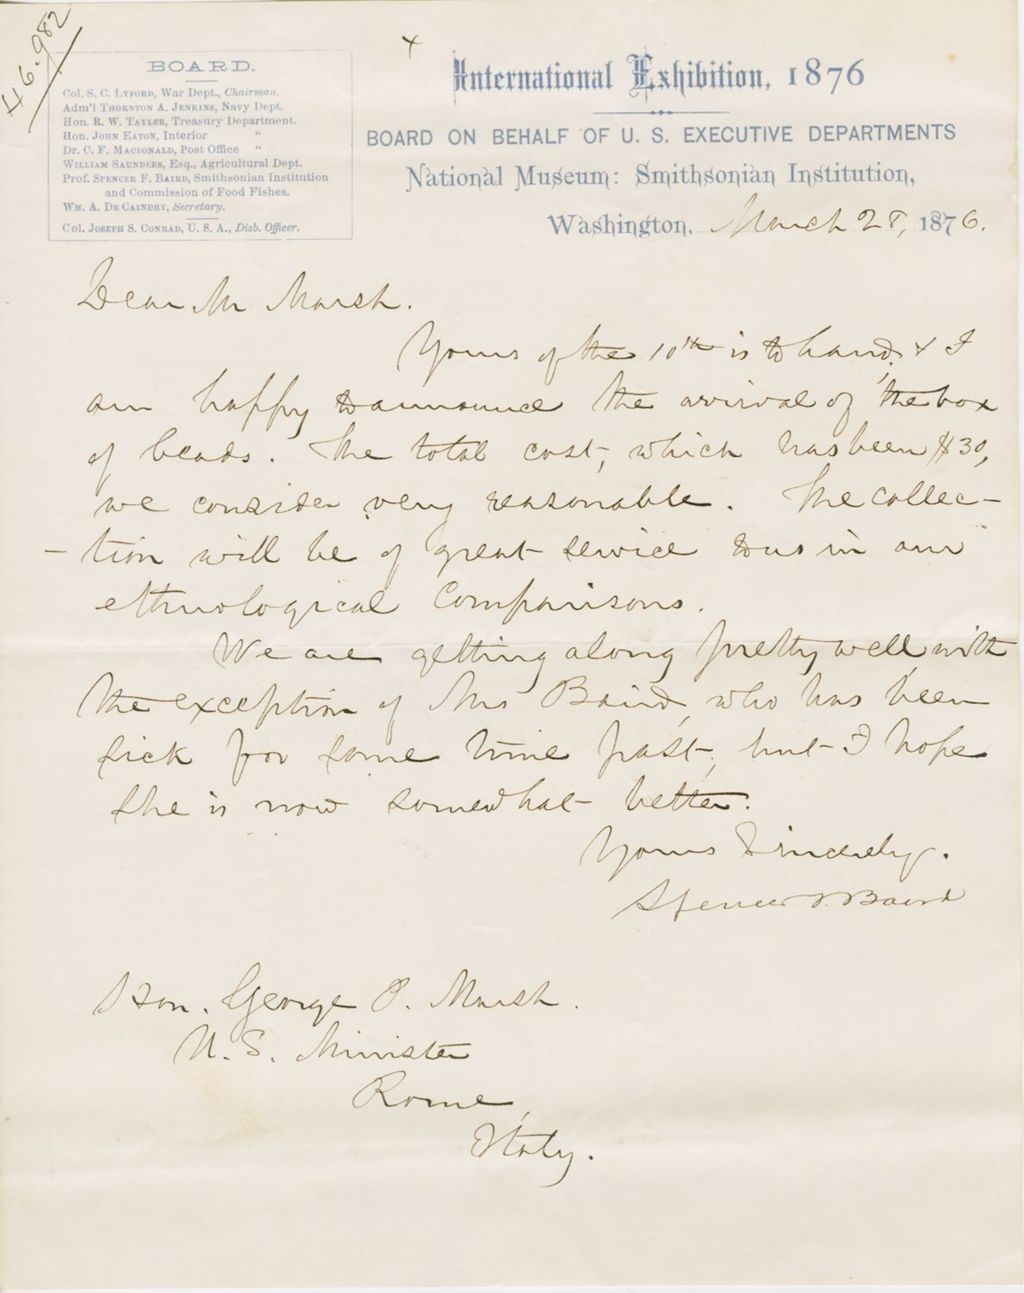 46.982
BOARD.
Col. S. C. LYFORD, War Dept., Chairman.
Adm'l THORNTON A. JENKINS, Navy Dept.
Hon. R. W. TAYLER, Treasury Department.
Hon. JOHN EATON, Interior "
Dr. C. F. MACDONALD, Post Office "
WILLIAM SAUNDERS, Esq., Agricultural Dept.
Prof. SPENCER F. BAIRD, Smithsonian Institution
and Commission of Food Fishes.
WM. A. DE CAINDRY, Secretary.
Col. JOSEPH S. CONRAD, U. S. A., Disb. Officer.
x
International Exhibition, 1876
BOARD ON BEHALF OF U. S. EXECUTIVE DEPARTMENTS
National Museum: Smithsonian Institution,
Washington, March 28, 1876.
Dear Mr Marsh.
Yours of the 10th is to hand, & I
am happy to announce the arrival of the box
of beads. The total cost, which has been $30,
we consider very reasonable. The collec-
-tion will be of great service to us in our
ethnological comparisons.
We are getting along pretty well, with
the exception of Mrs Baird, who has been
sick for some time past, but I hope
she is now somewhat better.
Yours Sincerely.
Spencer F. Baird
Hon. George P. Marsh.
U. S. Minister
Rome,
Italy.